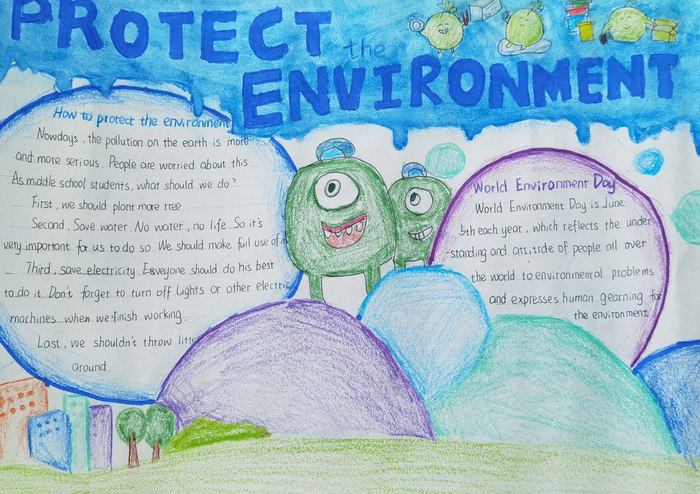 PROTECT the
ENVIRONMENT
How to protect the environment
Nowdays, the pollution on the earth is more
and more serious. People are worried about this.
As middle school students, what should we do?
First, we should plant more tree
Second, Save water. No water, no life. So it's
very important for us to do so. We should make full use of it
Third, save electricity. Eveyone should do his best
to do it. Don't forget to turn off lights or other electric
machines when we finish working.
Last, we shouldn't throw litte
around
World Environment Day
World Environment Day is June.
5th each year, which reflects the under
-standing and attitide of people all over
the world to environmental problems
and expresses human gearning for
the environment